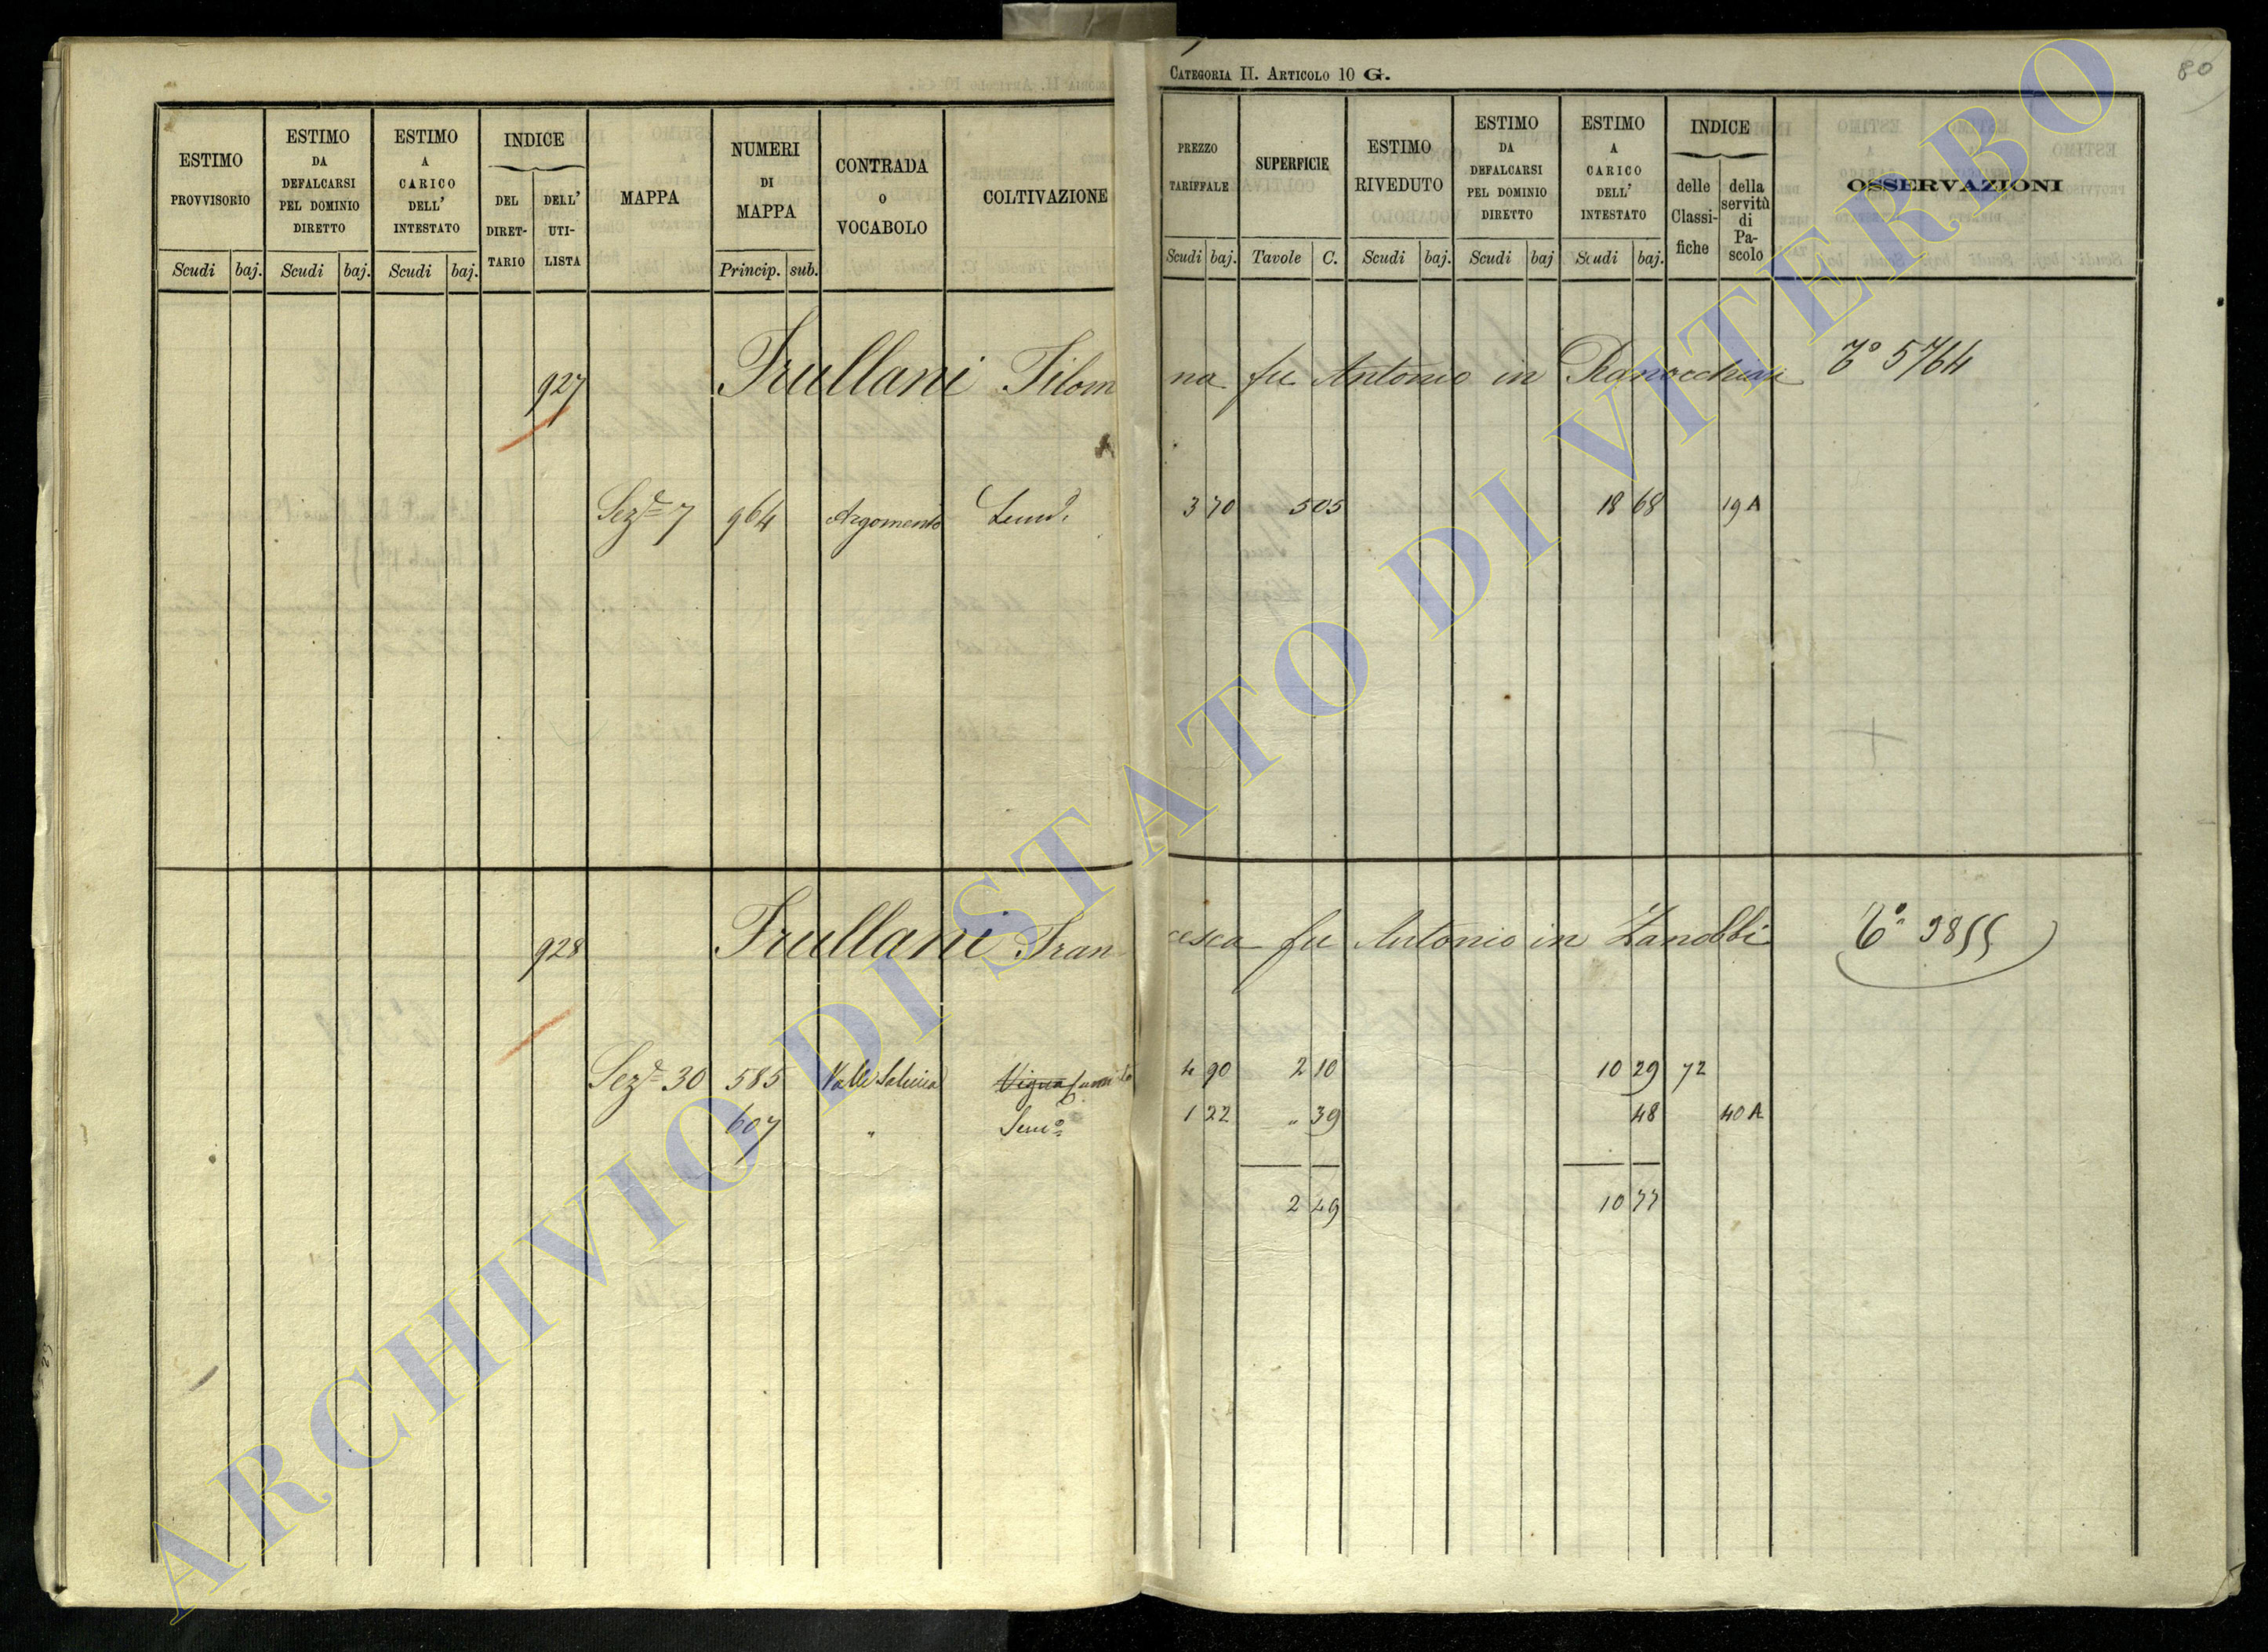 CATEGORIA II. ARTICOLO 10 G.
80
ESTIMO PROVVISORIO
Scudi baj.
ESTIMO DA DEFALCARSI PEL DOMINIO DIRETTO
Scudi baj.
ESTIMO A CARICO DELL' INTESTATO
Scudi baj.
INDICE
DEL DIRET-TARIO
DELL' UTI-LISTA
MAPPA
NUMERI DI MAPPA
Princip. sub.
CONTRADA O VOCABOLO
COLTIVAZIONE
PREZZO TARIFFALE
Scudi baj.
SUPERFICIE
Tavole C.
ESTIMO RIVEDUTO
Scudi baj.
ESTIMO DA DEFALCARSI PEL DOMINIO DIRETTO
Scudi baj
ESTIMO A CARICO DELL' INTESTATO
Scudi baj.
INDICE
delle Classi-fiche
della servitù di Pa-scolo
OSSERVAZIONI
927 Frullani Filom na fu Antonio in T.° 5764
Sez.e 7 964 Argomento 3 70 505 18 68 19 A
928 Frullani Fran cesca fu Antonio in Zanobbi T.° 3855
Sez.e 30 585 Valle Vigna 4 90 2 10 10 29 72
607 " Sem.o 1 22 " 39 48 40 A
2 49 10 77
ARCHIVIO DI STATO DI VITERBO